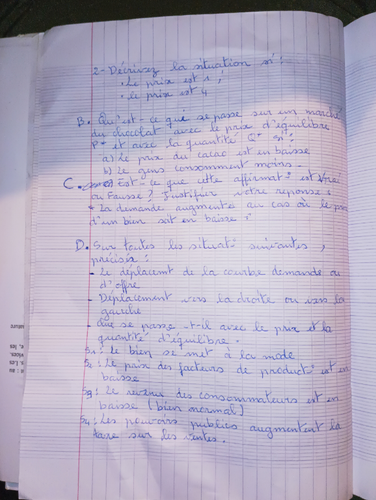 2 - Décrivez la situation si :
. Le prix est 1 ;
. le prix est 4
B. Qu'est - ce que se passe sur un marché
du chocolat avec le prix d'équilibre
P* et avec la quantité Q* si :
a) Le prix du cacao est en baisse
b) Le gens consomment moins.
C. Est - ce que cette affirmat° est Vrai
ou Fausse ? Justifier votre reponse :
" La demande augmente au cas où le prix
d'un bien soit en baisse "
D. Sur toutes les situat° suivantes,
précisée :
- Le déplacemt de la courbe demande ou
d'offre
- Déplacement vers la droite ou vers la
gauche
- Que se passe -t-il avec le prix et la
quantité d'équilibre.
S1 : le bien se met à la mode
S2 : Le prix des facteurs de product° est en
baisse
S3 : Le revenu des consommateurs est en
baisse (bien normal)
S4 : Les pouvoirs publics augmentent la
taxe sur les ventes.